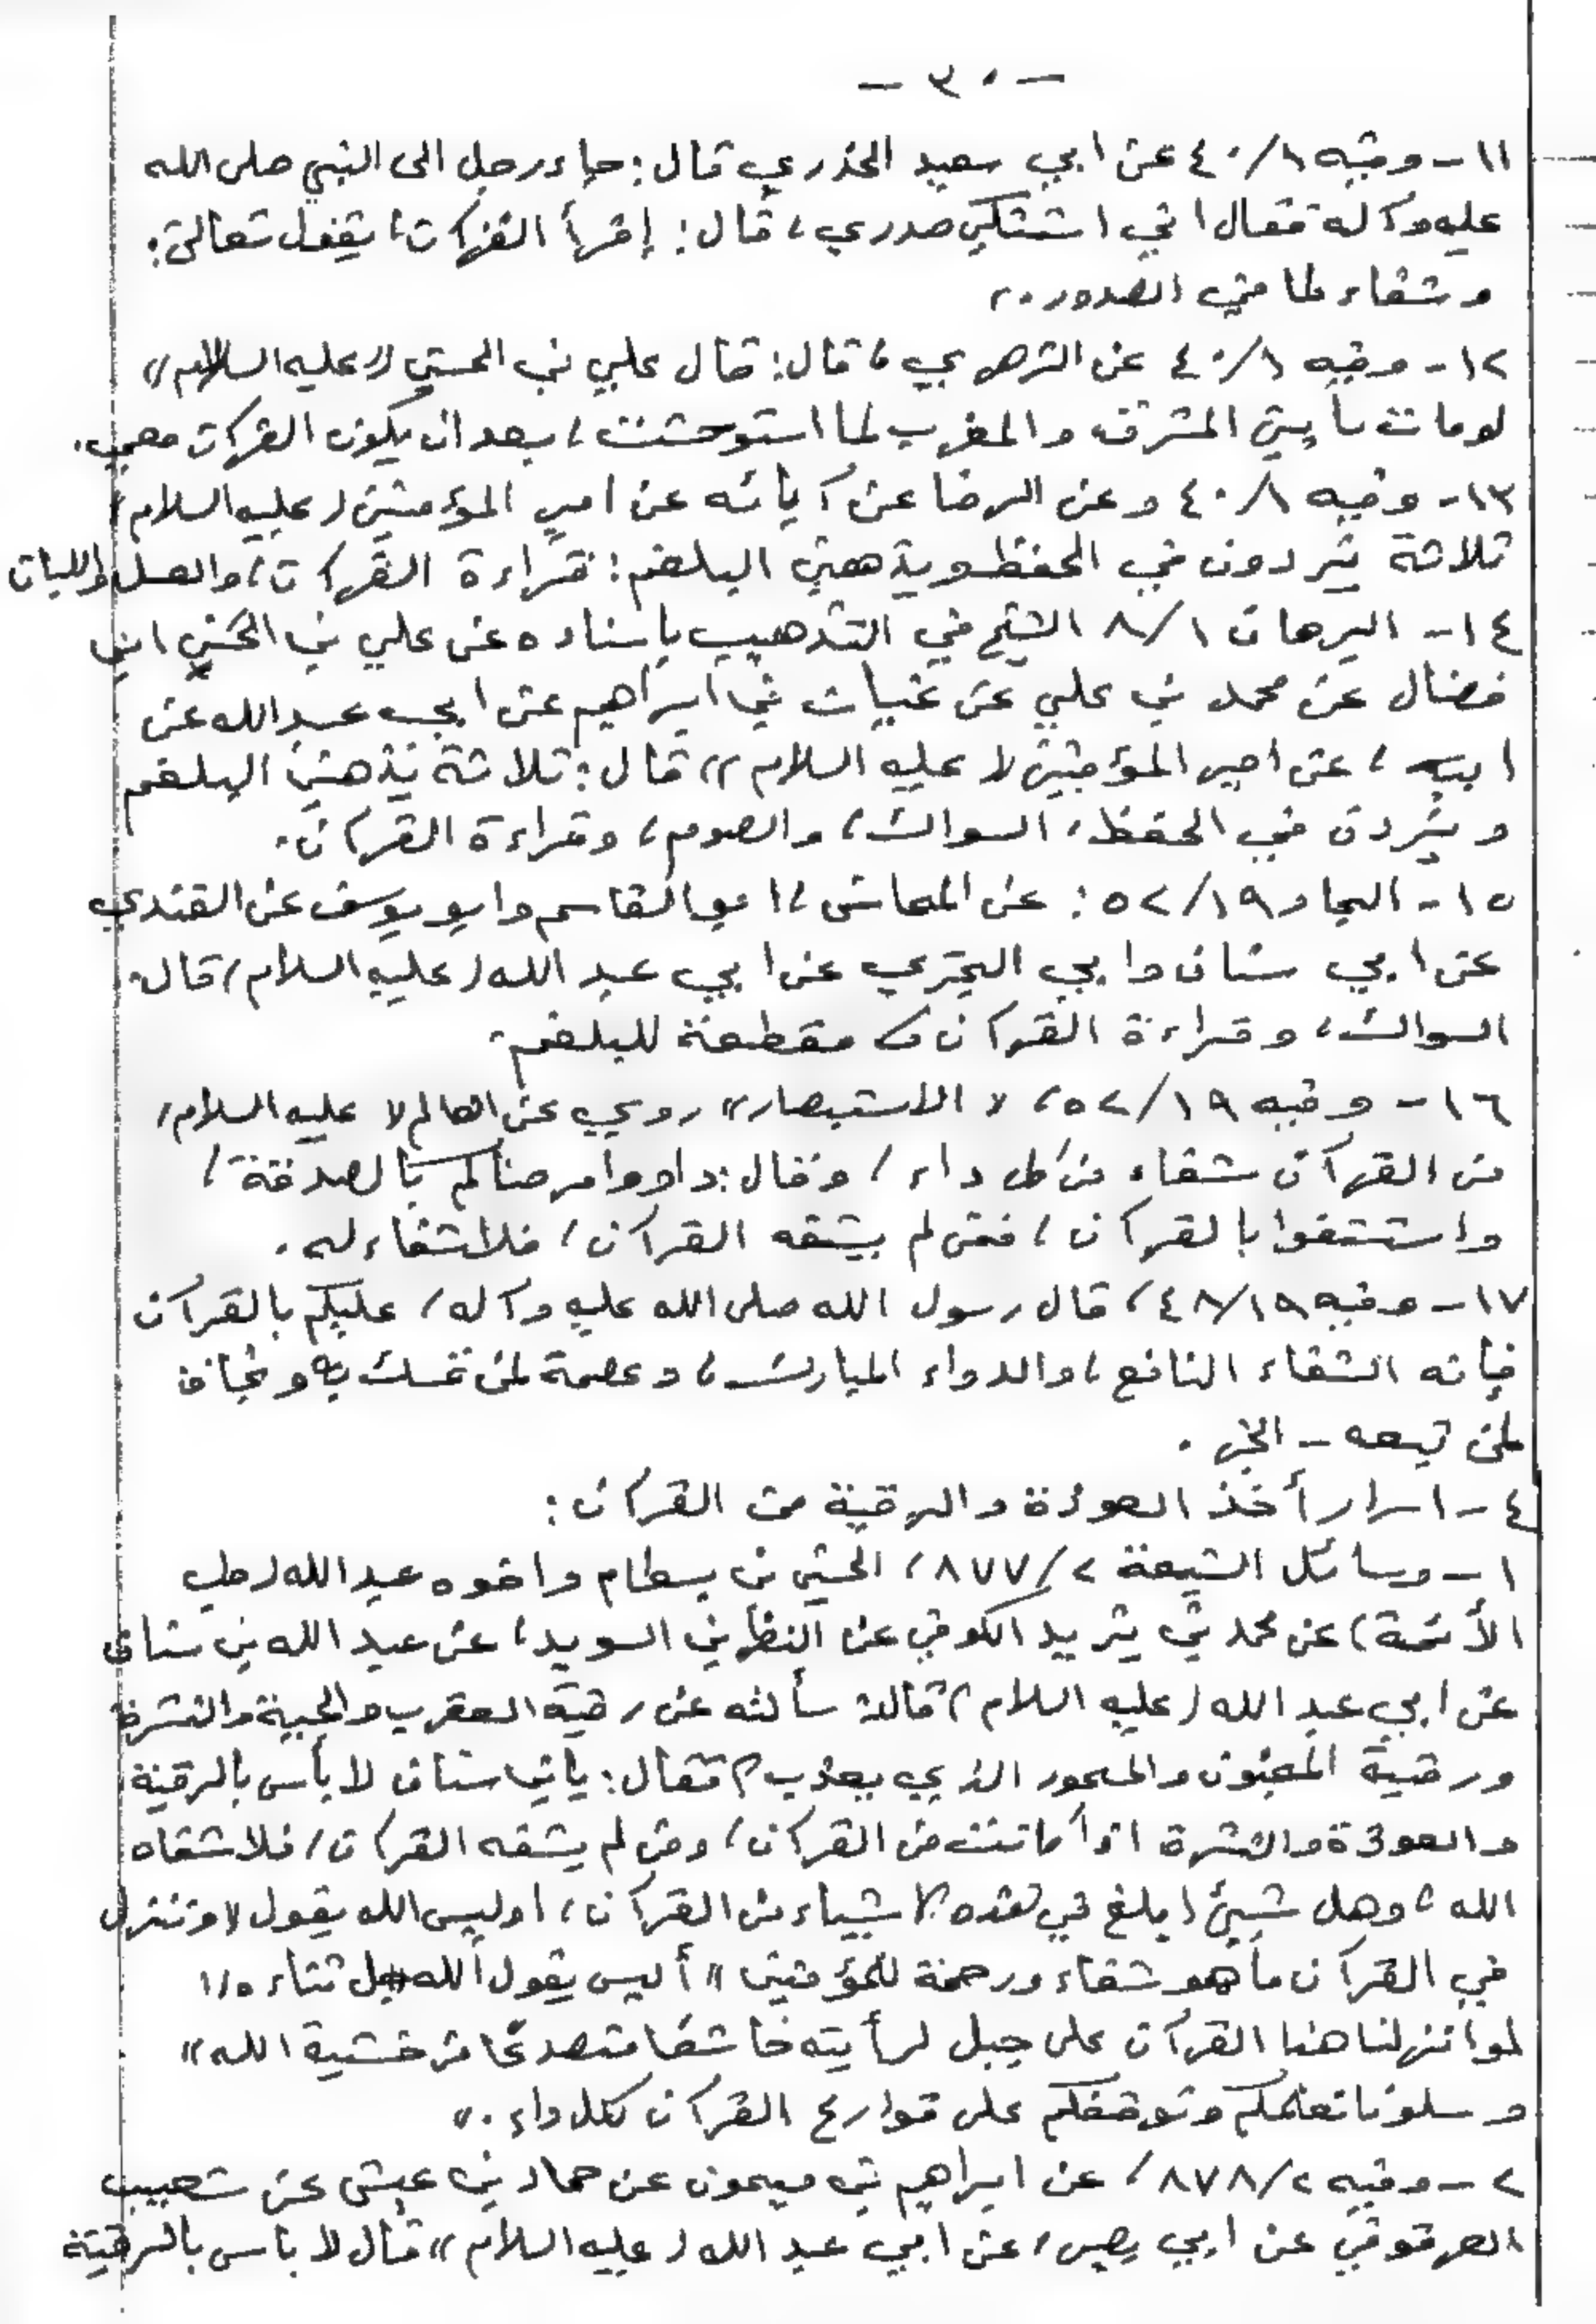 - ٣٠ -
١١- وفيه ٤٠/١ عن ابي سعيد الخدري قال: جاء رجل الى النبي صلى الله
عليه وآله فقال اني اشتكي صدري، قال: إقرأ القرآن، يقول تعالى:
وشفاء لما في الصدور.،
١٢- وفيه ٤٠/١ عن الزهري، قال: قال علي بن الحسين «عليه السلام»
لو مات ما بين المشرق والمغرب لما استوحشت، بعد ان يكون القرآن معي.
١٣- وفيه ٤٠/١ وعن الرضا عن آبائه عن امير المؤمنين (عليه السلام)
ثلاثة يزدون في الحفظ ويذهبن البلغم: قراءة القرآن، والعسل واللبان
١٤- البرهان ٨/١ الشيخ في التهذيب باسناده عن علي بن الحسن ابن
فضال عن محمد بن علي عن غياث بن ابراهيم عن ابي عبدالله عن
ابيه، عن امير المؤمنين «عليه السلام» قال: ثلاثة يذهبن البلغم
ويزدن في الحفظ، السواك، والصوم، وقراءة القرآن.
١٥- البحار ٥٢/١٩: عن المحاسن، ابو القاسم وابو يوسف عن القندي
عن ابي سنان وابي البختري عن ابي عبد الله (عليه السلام) قال:
السواك، وقراءة القرآن مقطعة للبلغم.
١٦- وفيه ٥٢/١٩، «الاستبصار» روي عن العالم «عليه السلام،
من القرآن شفاء من كل داء، وقال: داووا مرضاكم بالصدقة،
واستشفوا بالقرآن، فمن لم يشفه القرآن، فلا شفاء له.
١٧- وفيه ٤٨/١٩، قال رسول الله صلى الله عليه وآله، عليكم بالقرآن
فإنه الشفاء النافع، والدواء المبارك، وعصمة لمن تمسك به ونجاة
لمن تبعه - الخبر.
٤- اسرار أخذ العوذة والرقية من القرآن:
١- وسائل الشيعة ٨٧٧/٢، الحسين بن بسطام واخوه عبد الله (طب
الأئمة) عن محمد بن يزيد الكوفي عن النظر بن السويد، عن عبد الله بن سنان
عن ابي عبد الله (عليه السلام) قال: سألته عن رقية العقرب والحية والنشرة
ورقية المجنون والمسحور الذي يعذب؟ فقال: يا بن سنان لا بأس بالرقية
والعوذة والنشرة اذا كانت من القرآن، ومن لم يشفه القرآن، فلا شفاه
الله، وهل شيئ ابلغ في هذه الاشياء من القرآن، اوليس الله يقول «وننزل
في القرآن ما هو شفاء ورحمة للمؤمنين» أليس يقول الله جل ثناءه،،
لو انزلنا هذا القرآن على جبل لرأيته خاشعًا متصدعًا من خشية الله»
وسلونا نعلمكم ونوقفكم على قوارع القرآن لكل داء.»
٢- وفيه ٨٧٨/٢، عن ابراهيم بن ميمون عن حماد بن عيسى عن شعيب
العرقوفي عن ابي بصير، عن ابي عبد الله (عليه السلام» قال لا بأس بالرقية